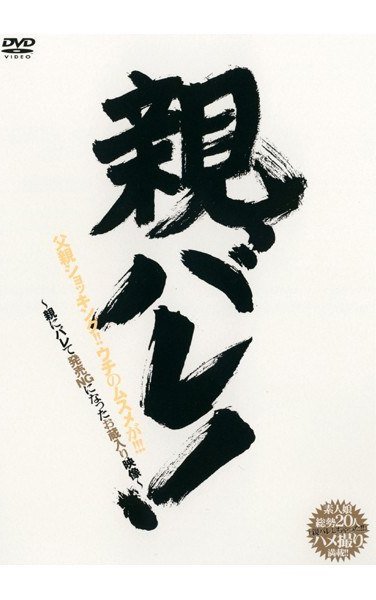 DVD
VIDEO
親バレ!
父親ショッキング!!ウチのムスメが!!!
~親にバレて発売NGになったお蔵入り映像~
素人娘
総勢20人
ハメ撮り
満載!!